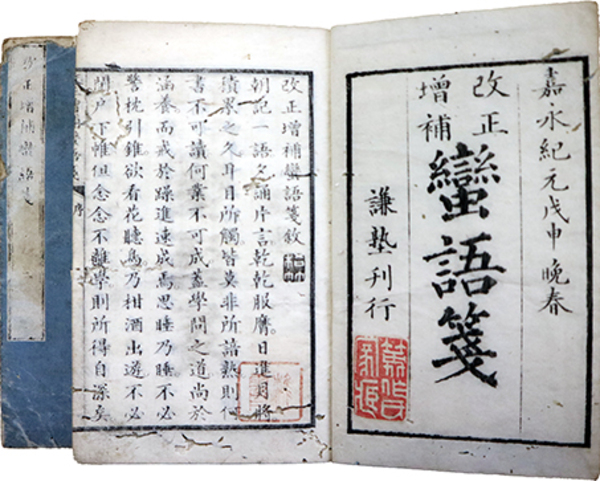 嘉永紀元戊申晚春
改正
增補
蠻語箋
謙塾刊行
改正增補蠻語箋敘
朝記一語夕誦片言乾乾服膺。日進月將
積累之久耳目所觸皆莫非所諳熟則何
書不可讀何業不可成蓋學問之道尚於
涵養而戒於躁進速成焉思睡乃睡不必
警枕引錐欲看花聽鳥乃柑酒出遊不必
閉戶下帷但念念不離學則所得自深矣
改正增補蠻語箋